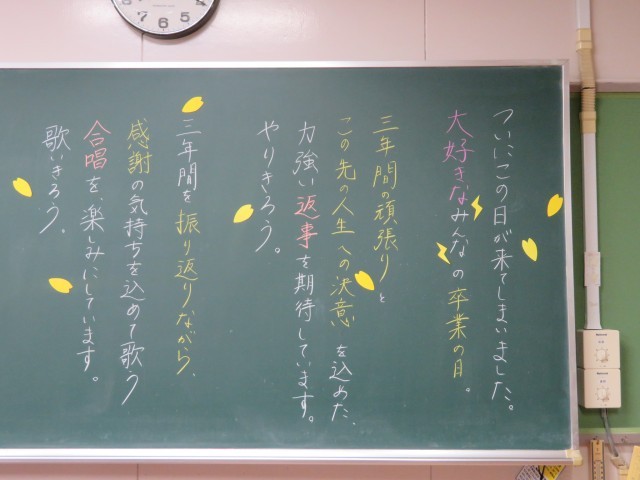 ついにこの日が来てしまいました。
大好きなみんなの卒業の日。
三年間の頑張りと
この先の人生への決意を込めた、
力強い返事を期待しています。
やりきろう。
三年間を振り返りながら、
感謝の気持ちを込めて歌う
合唱を、楽しみにしています。
歌いきろう。
8
7
6
5
4